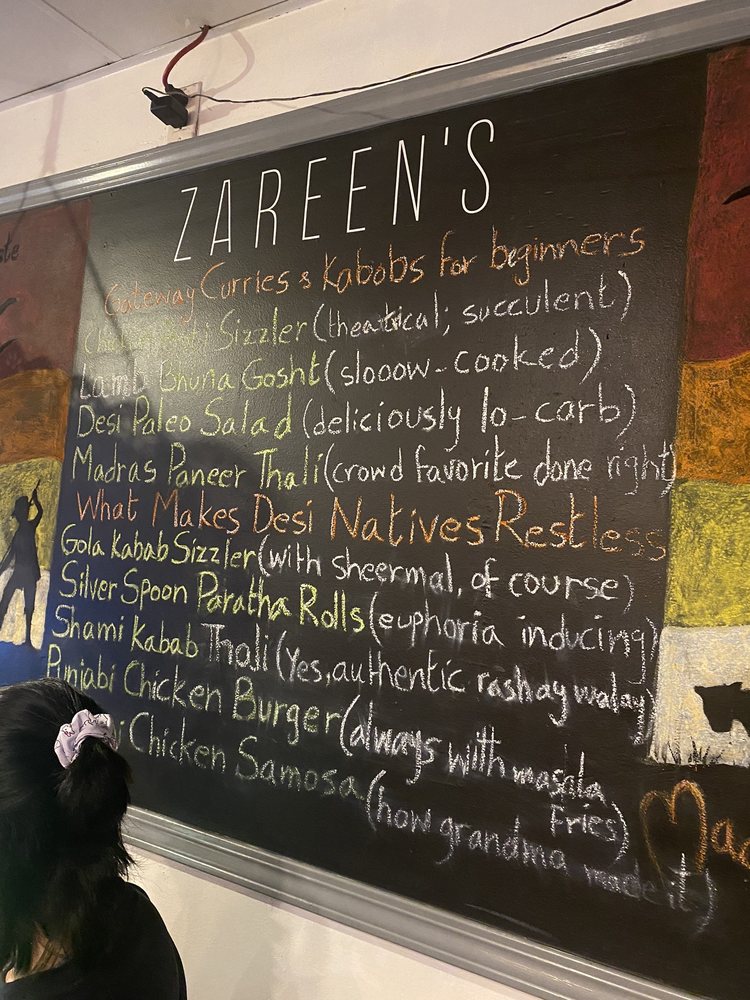 ZAREEN'S
Gateway Curries & Kabobs for beginners
Sizzler (theatrical; succulent)
Lamb Bhuna Gosht (slooow-cooked)
Desi Paleo Salad (deliciously lo-carb)
Madras Paneer Thali (crowd favorite done right)
What Makes Desi Natives Restless
Gola Kabab Sizzler (with sheermal, of course)
Silver Spoon Paratha Rolls (euphoria inducing)
Shami Kabab Thali (Yes, authentic rashay walay)
Punjabi Chicken Burger (always with masala
Fries)
Chicken Samosa (how grandma made it)